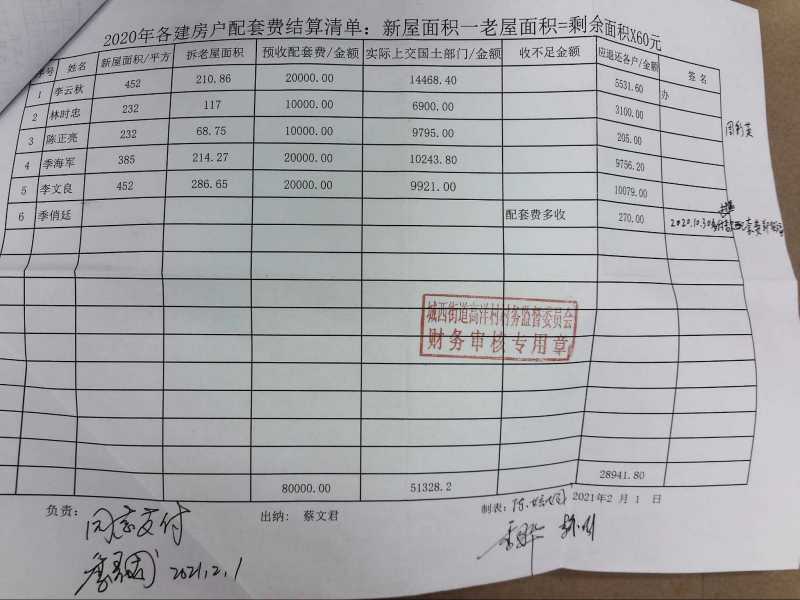 2020年各建房户配套费结算清单：新屋面积一老屋面积=剩余面积X60元
序号 姓名 新屋面积/平方 拆老屋面积 预收配套费/金额 实际上交国土部门/金额 收不足金额 应退还各户/金额 签名
1 李云秋 452 210.86 20000.00 14468.40 5531.60
办
2 林时忠 232 117 10000.00 6900.00 3100.00
3 陈正亮 232 68.75 10000.00 9795.00 205.00
4 季海军 385 214.27 20000.00 10243.80 9756.20
5 李文良 452 286.65 20000.00 9921.00 10079.00
6 季俏廷 配套费多收 270.00 2020.10.30
城西街道高洋村村务监督委员会
财务审核专用章
80000.00 51328.2 28941.80
负责： 出纳: 蔡文君 制表: 2021年2 月 1 日
同意支付
2021.2.1